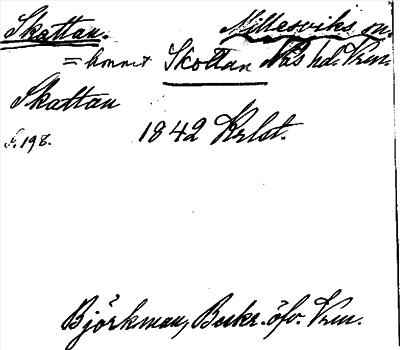 Skattan. Millesviks sn.
= hemmet Skottan Näs hd. Vrm.
Skattan
s. 198. 1842 Krlst.
Björkman, Beskr. öfv. Vrm.